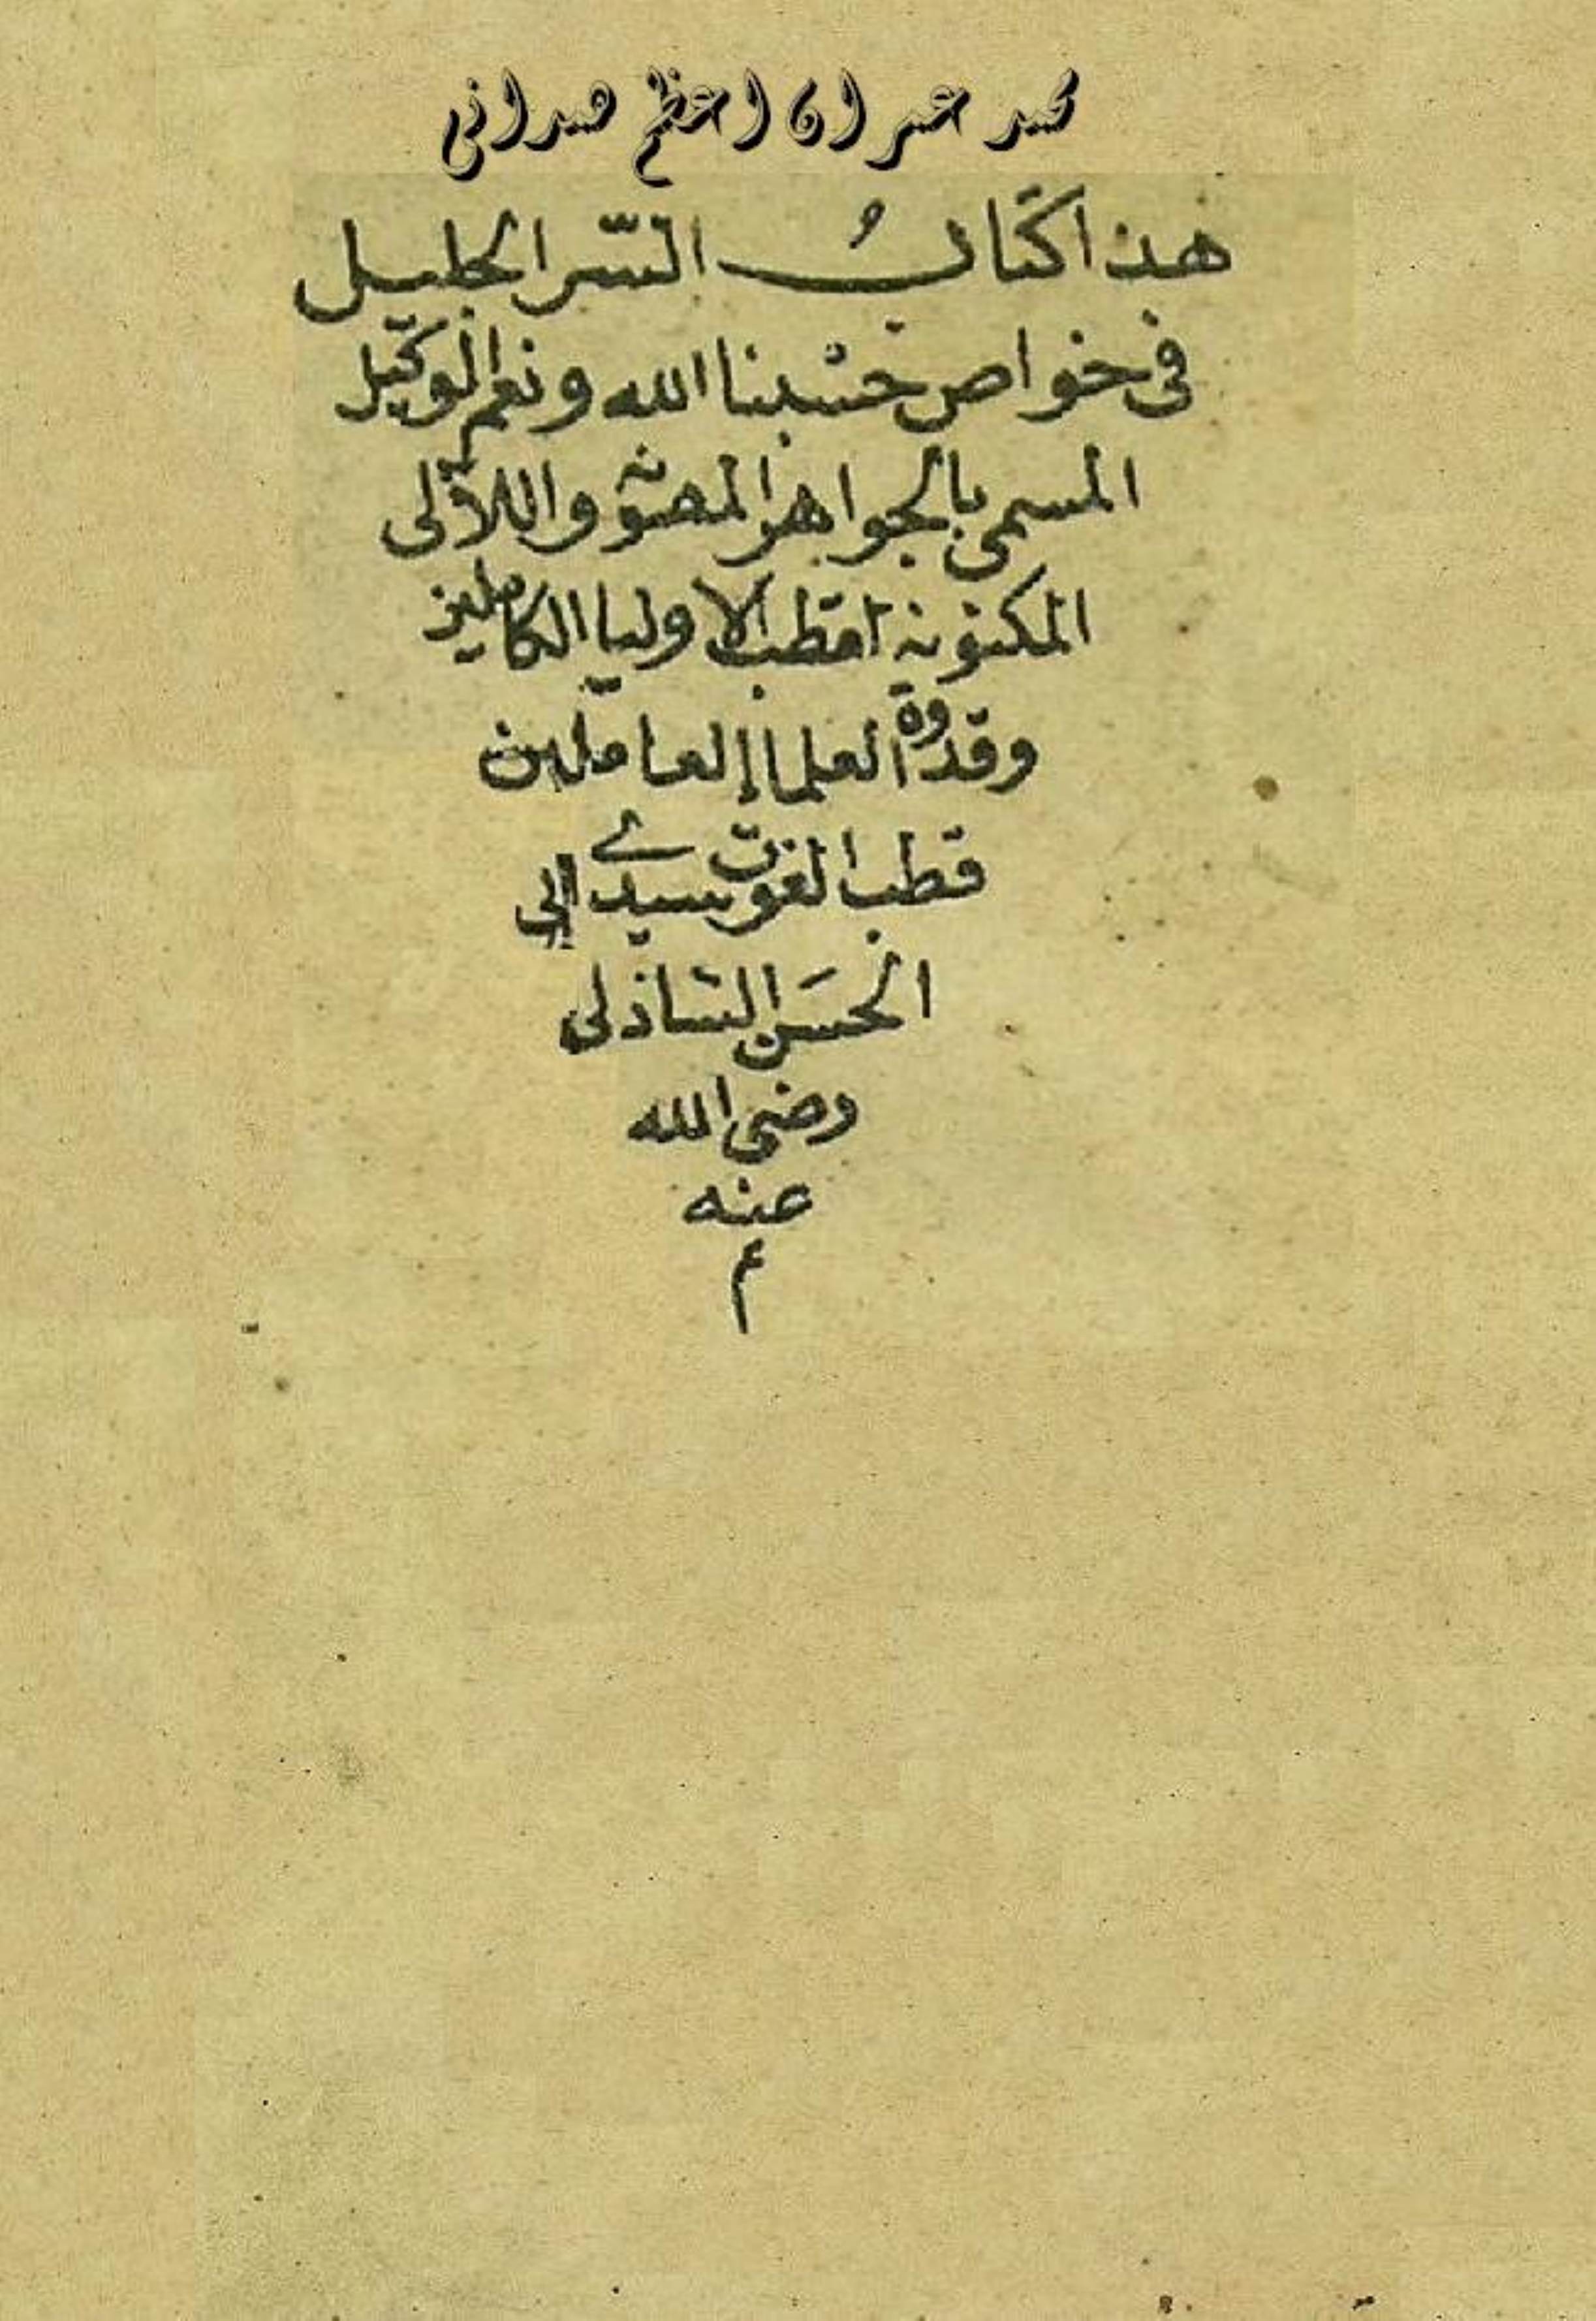 محمد عمران اعظم همدانی
هذا كتابُ السّر الجليل
فى خواص حسبنا الله ونعم الوكيل
المسمى بالجواهر المصونة واللآلى
المكنونة لقطب الاوليا الكاملين
وقدوة العلما العاملين
قطب الغوث سيدى ابى
الحسَن الشاذلى
رضى الله
عنه
م